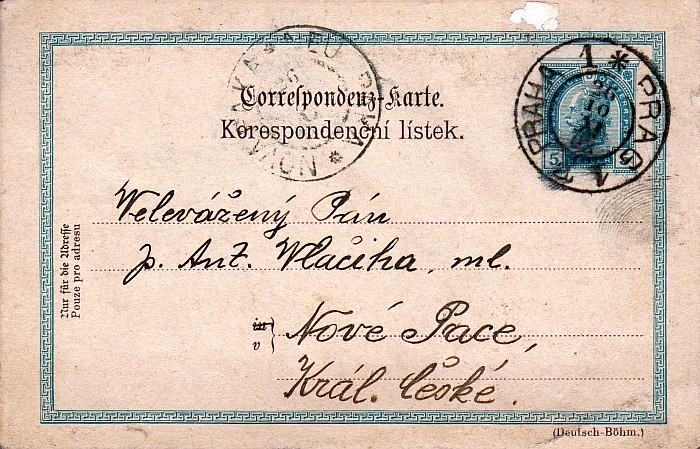 Correspondenz-Karte.
Korespondenční lístek.
PRAHA 1 * PRAG 1
5
Nur für die Adresse
Pouze pro adresu
Welevážený Pán
p. Ant. Wlačiha, ml.
in
v
Nové Pace,
Král. České.
(Deutsch-Böhm.)